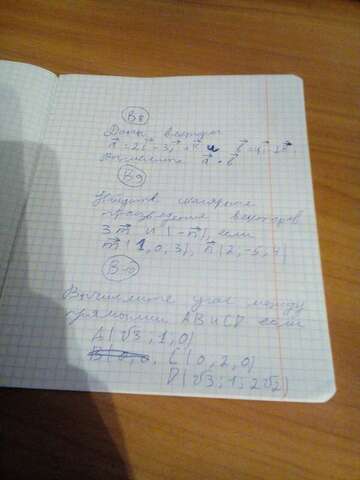 В8
Даны векторы
a = 2i - 3j + k и b = 4i - 2k.
Вычислите a · b
В9
Найдите скалярное
произведение векторов
3m и (-n), если
m(1, 0, 3), n(2, -5, 4)
В-10
Вычислите угол между
прямыми AB и CD если
A(√3; 1, 0)
B(0, 0, C(0, 2, 0)
D(√3; 1; 2√2)